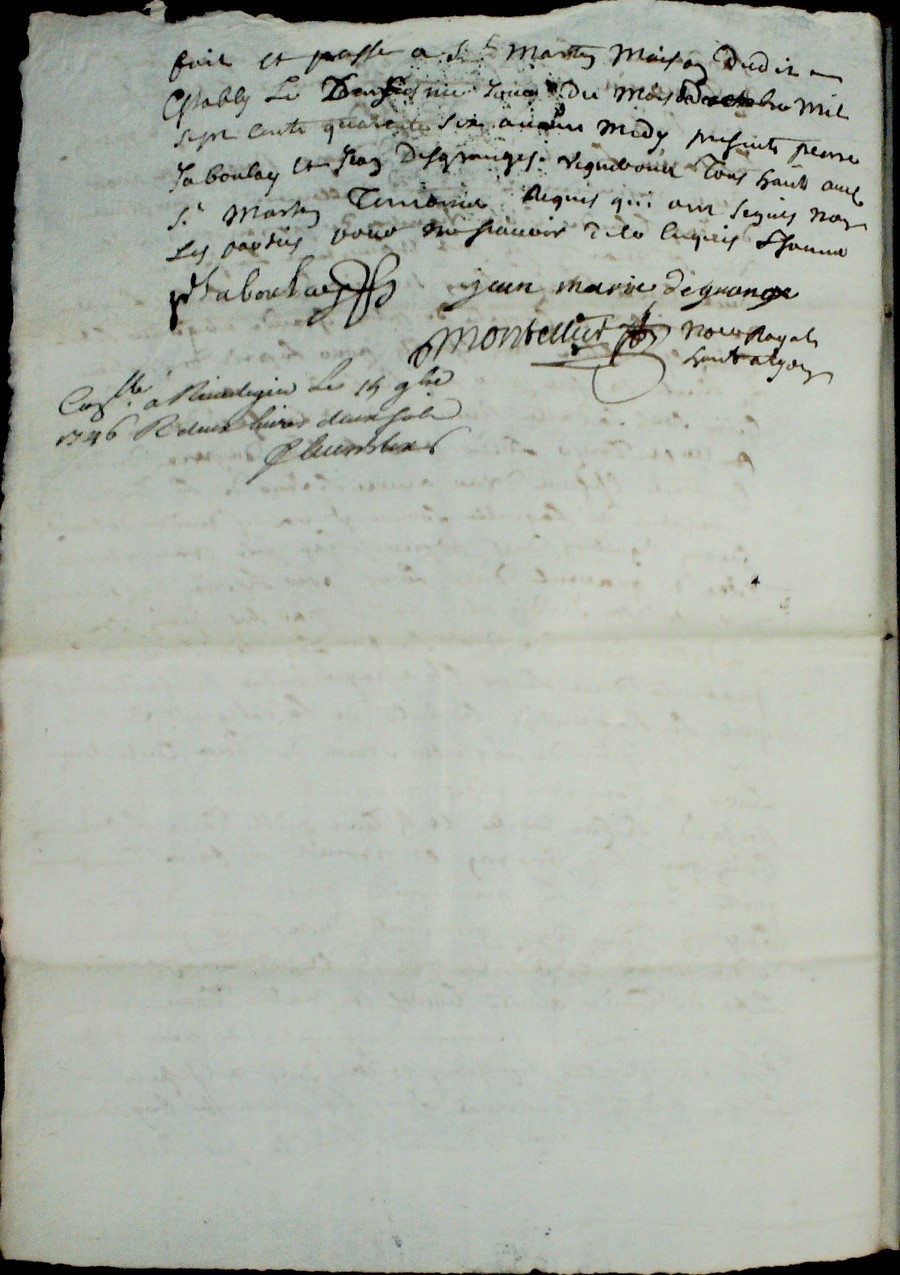 fait et passé a St Martin Maison dudit
Estably Le Deuxiesme Jour du mois doctobre mil
sept cents quarente six avant midy presents pierre
Jaboulay et Jean Desgranges vignerons Tous habts audt
St Martin Temoins Requis qui ont signés non
Les parties pour ne scavoir de ce Enquis & somme
Jaboulay jean marie degrange
Montellier Nore Royal
a Rivedegier Le 14 9bre
1746 R deux livres deux sols